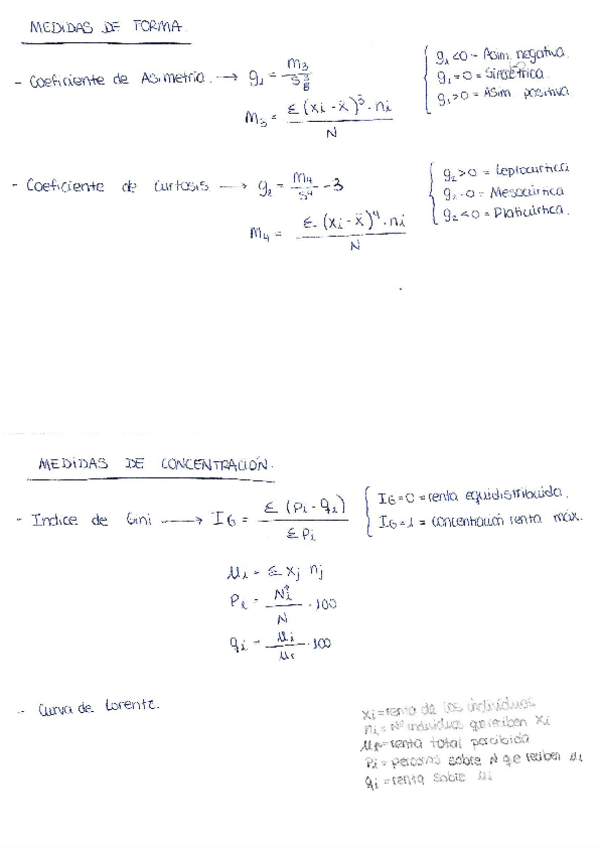 MEDIDAS DE FORMA.
- Coeficiente de Asimetria. → g₁ = m₃ / s³
g₁ < 0 - Asim. negativa.
g₁ = 0 = Simétrica.
g₁ > 0 = Asim positiva
m₃ = Σ (xi - x̄)³ · ni / N
- Coeficiente de Curtosis → g₂ = m₄ / s⁴ - 3
g₂ > 0 = Leptocúrtica
g₂ = 0 = Mesocúrtica
g₂ < 0 = Platicúrtica.
m₄ = Σ (xi - x̄)⁴ · ni / N
MEDIDAS DE CONCENTRACIÓN.
- Indice de Gini → IG = Σ (pi - qi) / Σ pi
IG = 0 = renta equidistribuida.
IG = 1 = concentración renta máx.
ui = Σ xj nj
Pi = Ni / N · 100
qi = ui / ur · 100
- Curva de Lorentz.
xi = renta de los individuos
ni = Nº individuos que reciben xi
ur = renta total percibida
Pi = personas sobre N que reciben ui
qi = renta sobre ui